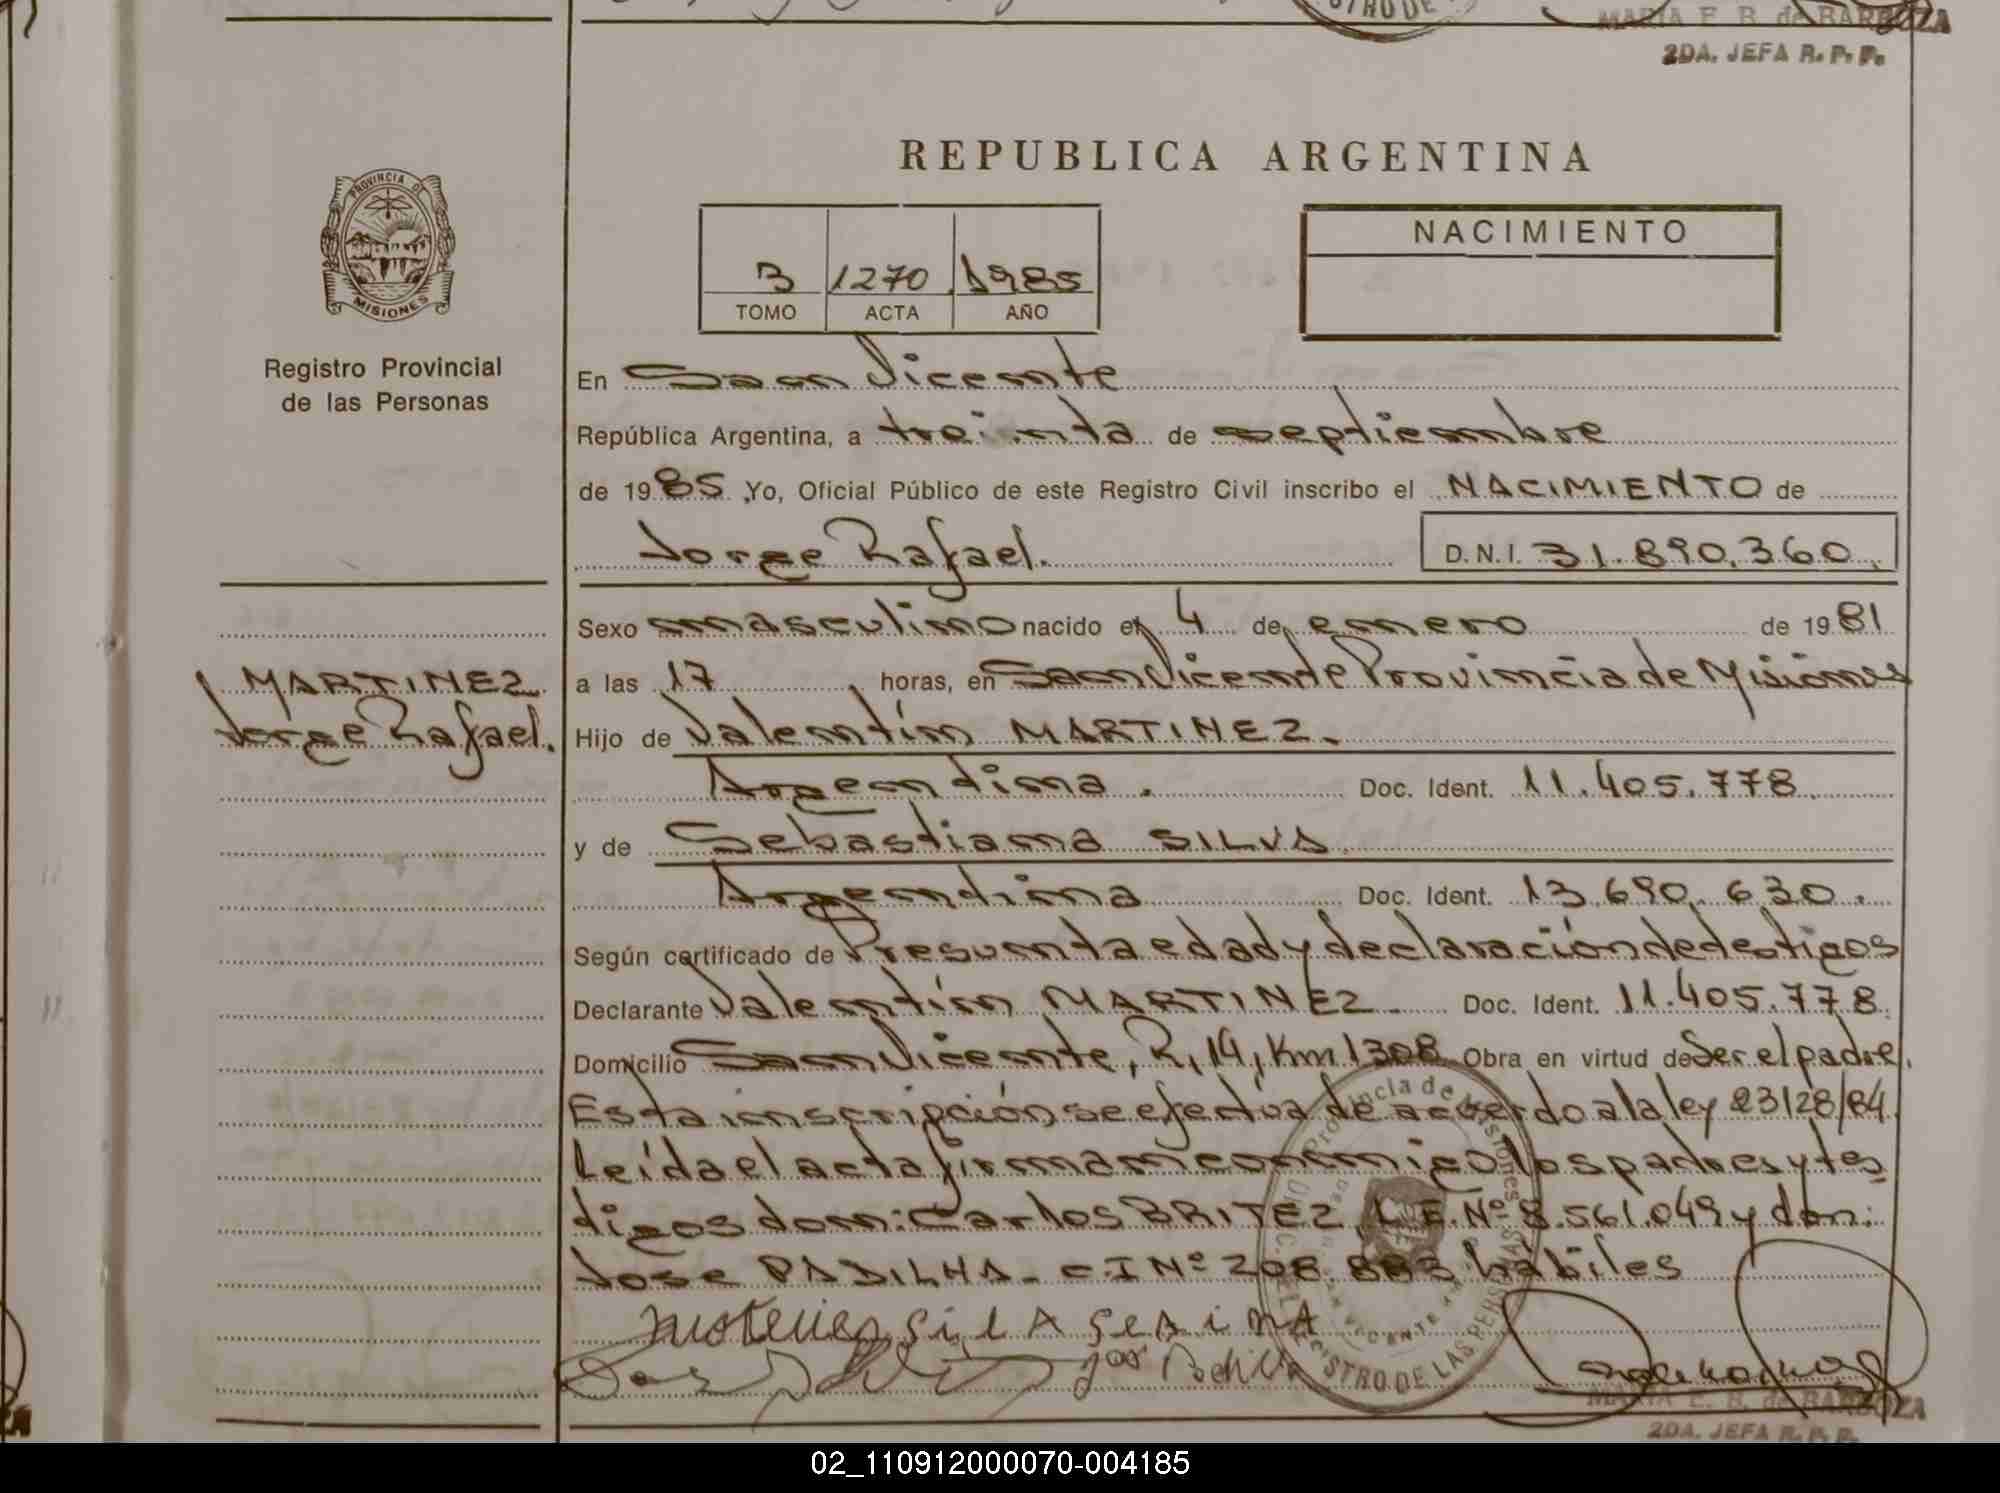 STRO DE
MARIA E. B. de BARBOZA
2DA. JEFA R. P. P.
REPUBLICA ARGENTINA
PROVINCIA DE
MISIONES
Registro Provincial
de las Personas
3 1270 1985
TOMO ACTA AÑO
NACIMIENTO
En San Vicente
República Argentina, a treinta de septiembre
de 1985 Yo, Oficial Público de este Registro Civil inscribo el NACIMIENTO de
Jorge Rafael. D.N.I. 31.890.360.
Sexo masculino nacido el 4 de enero de 1981
MARTINEZ
Jorge Rafael.
a las 17 horas, en San Vicente Provincia de Misiones
Hijo de Valentín MARTINEZ.
Argentina. Doc. Ident. 11.405.778.
y de Sebastiana SILVA.
Argentina Doc. Ident. 13.690.630.
Según certificado de Presunta edad y declaración de testigos
Declarante Valentín MARTINEZ. Doc. Ident. 11.405.778.
Domicilio San Vicente, R, 14, Km 1308 Obra en virtud de Ser el padre.
Esta inscripción se efectúa de acuerdo a la ley 23128/84.
Leída el acta firman conmigo los padres y tes
tigos don: Carlos BRITEZ L.E. Nº 8.561.049 y don:
Jose PADILHA - C I Nº 208.883 hábiles
Provincia de Misiones
REGISTRO DE LAS PERSONAS
MARIA E. B. de BARBOZA
2DA. JEFA R. P. P.
02_110912000070-004185